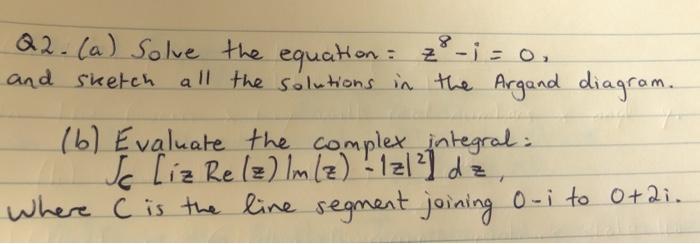 Q2. (a) Solve the equation: z⁸ - i = 0,
and sketch all the solutions in the Argand diagram.
(b) Evaluate the complex integral:
∫c [iz Re(z) Im(z) - |z|²] dz,
where C is the line segment joining 0-i to 0+2i.